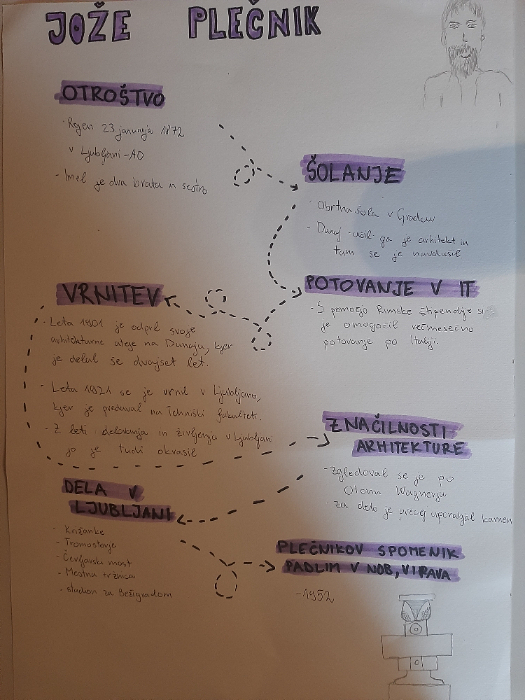 JOŽE PLEČNIK
OTROŠTVO
- Rojen 23 januarja 1872
v Ljubljani - AO
- Imel je dva brata in sestro
ŠOLANJE
- Obrtna šola v Gradcu
- Dunaj - učil ga je arhitekt in
tam se je navdušil
POTOVANJE V IT
- S pomočjo Rimske štipendije si
je omogočil večmesečno
potovanje po Italiji.
VRNITEV
- Leta 1901 je odprl svoje
arhitekturne ateje na Dunaju, kjer
je delal se dvajset let.
- Leta 1921 se je vrnil v Ljubljano,
kjer je predaval na Tehniški fakulteti.
- Z leti delovanja in življenja v Ljubljani
jo je tudi okrasil
ZNAČILNOSTI
ARHITEKTURE
- Zgledoval se je po
Ottonu Wagnerju
Za delo je vecoq uporabljal kamen
DELA V
LJUBLJANI
- Križanke
- Tromostovje
- Čevljarski most
- Mestna tržnica
- stadion za Bežigradom
PLEČNIKOV SPOMENIK
PADLIM V NOB, VIRAVA
- 1952